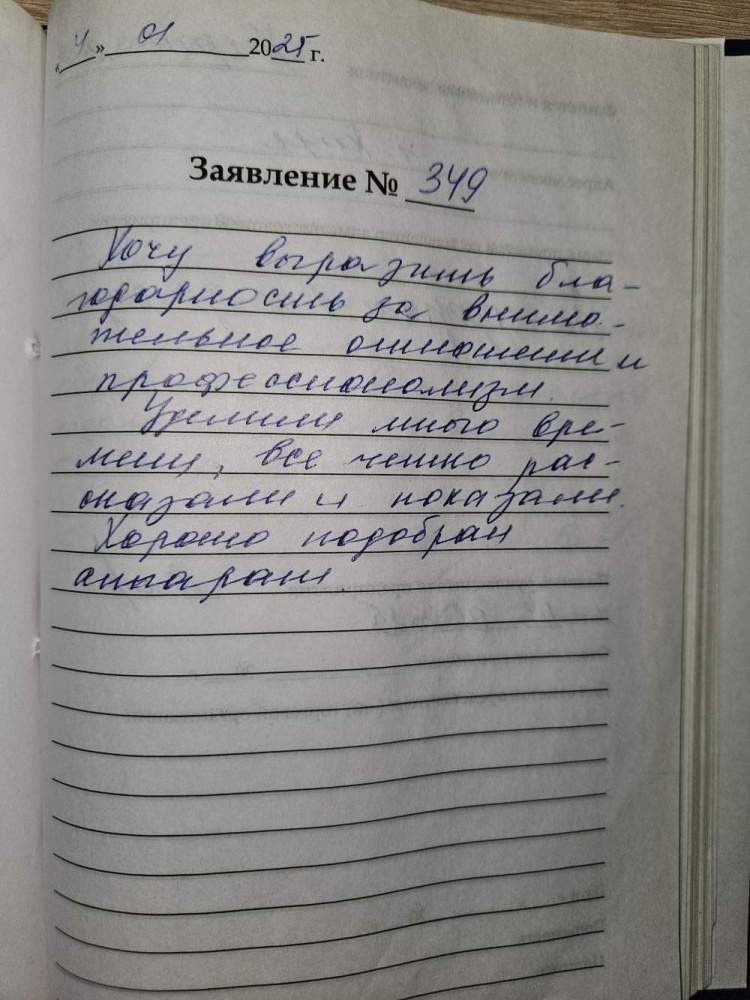 « 4 » 01 2025 г.
Заявление № 349
Хочу выразить бла-
годарность за внима-
тельное отношение и
профессионализм.
Уделили много вре-
мени, все четко рас-
сказали и показали.
Хорошо подобран
аппарат.